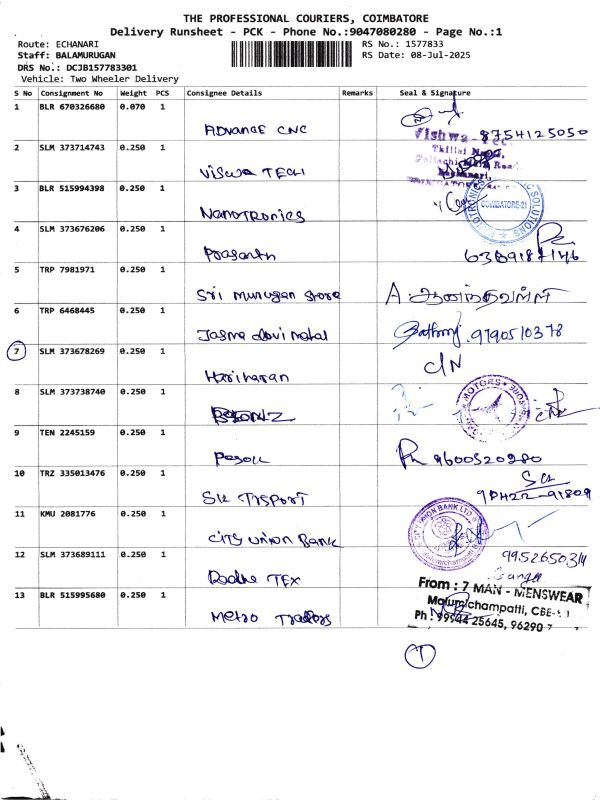 THE PROFESSIONAL COURIERS, COIMBATORE
Delivery Runsheet - PCK - Phone No.:9047080280 - Page No.:1
Route: ECHANARI
RS No.: 1577833
Staff: BALAMURUGAN
RS Date: 08-Jul-2025
DRS No.: DCJB157783301
Vehicle: Two Wheeler Delivery
S No Consignment No Weight PCS Consignee Details Remarks Seal & Signature
1 BLR 670326680 0.070 1
ADVANCE CNC
Vishwa 8754125050
2 SLM 373714743 0.250 1
VISWA TECH
Thillai
3 BLR 515994398 0.250 1
Nanotronics
COIMBATORE-21
SOLUTIONS
4 SLM 373676206 0.250 1
Prasanth
5 TRP 7981971 0.250 1
Sri murugan Store
A. ஆனந்தவள்ளி
6 TRP 6468445 0.250 1
9790510378
7 SLM 373678269 0.250 1
C/N
Hariharan
8 SLM 373738740 0.250 1
MOTORS
9 TEN 2245159 0.250 1
9600520980
10 TRZ 335013476 0.250 1
SK TRSPORT
11 KMU 2081776 0.250 1
UNION BANK LTD
City union Bank
12 SLM 373689111 0.250 1
9952650314
Radhe TEX
13 BLR 515995680 0.250 1
From : 7 MAN - MENSWEAR
Malumichampatti, CBE-
Metro Traders
Ph : 99944 25645, 96290